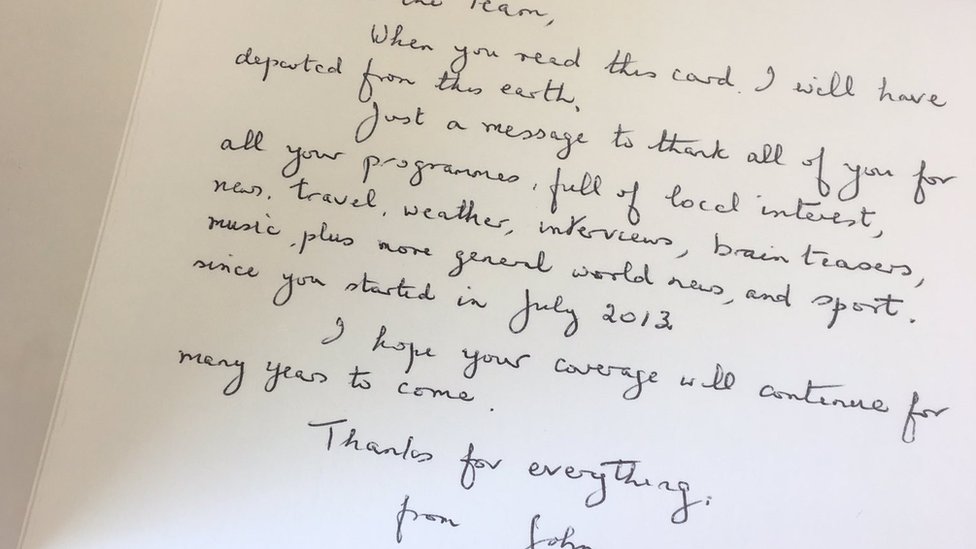 the Team,
When you read this card. I will have
departed from this earth.
Just a message to thank all of you for
all your programmes, full of local interest,
news, travel, weather, interviews, brain teasers,
music, plus more general world news, and sport.
since you started in July 2013
I hope your coverage will continue for
many years to come.
Thanks for everything.
from John